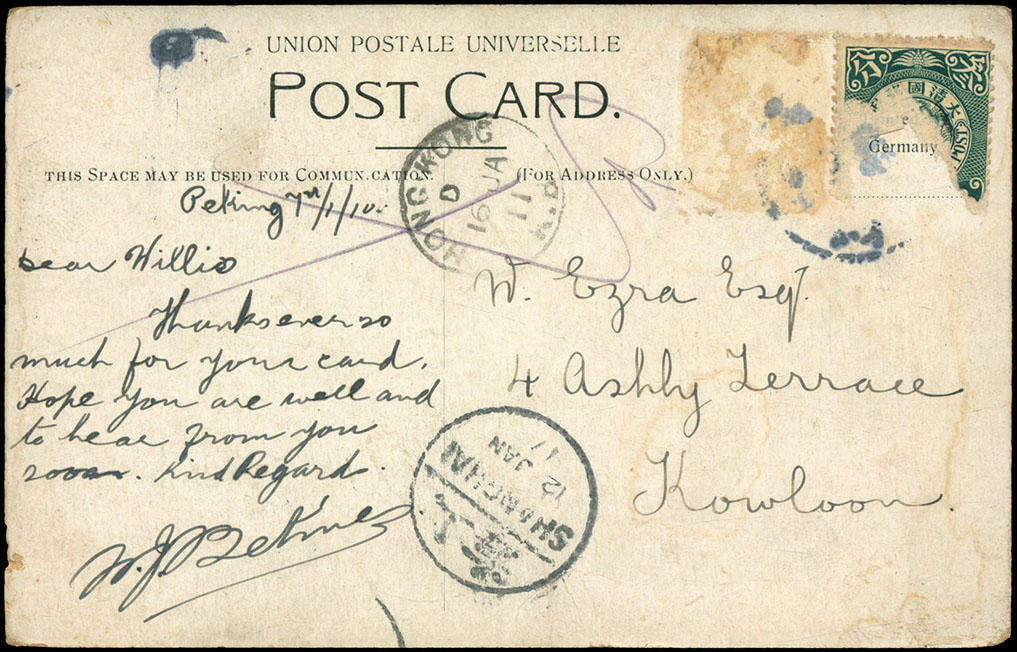 UNION POSTALE UNIVERSELLE
POST CARD.
THIS SPACE MAY BE USED FOR COMMUNICATION.
(FOR ADDRESS ONLY.)
HONG KONG
D
16 JA
11
大清國
POST
Germany
Peking 7th/1/10.
Dear Willie
Thanks ever so
much for your card.
Hope you are well and
to hear from you
soon. Kind Regard.
W. Ezra Esqr.
4 Ashly Terrace
Kowloon.
SHANGHAI
12 JAN
17
上海